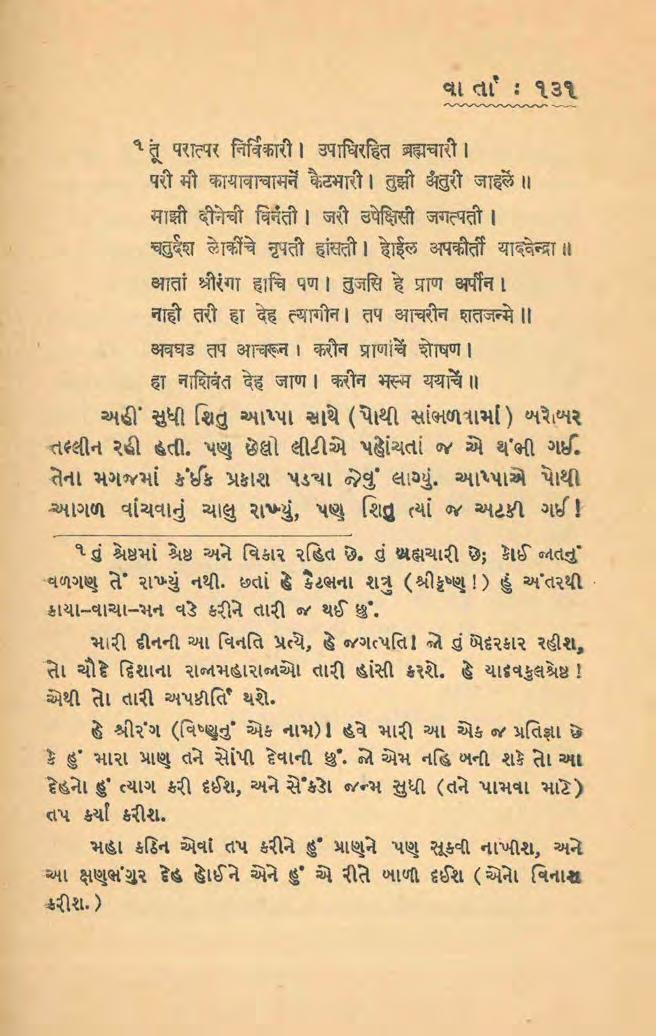 વાર્તા : ૧૩૧
૧ तूं परात्पर निर्विकारी। उपाधिरहित ब्रह्मचारी।
परी मी कायावाचामनें कैटभारी। तुझी अंतुरी जाहलें॥
माझी दीनेची विनंती। जरी उपेक्षिसी जगत्पती।
चतुर्दश लोकींचे नृपती हांसती। होईल अपकीर्ती यादवेन्द्रा॥
आतां श्रीरंगा हाचि पण। तुजसि हे प्राण अर्पीन।
नाही तरी हा देह त्यागीन। तप आचरीन शतजन्मे॥
अवघड तप आचरून। करीन प्राणांचें शोषण।
हा नाशिवंत देह जाण। करीन भस्म ययाचें॥
અહીં સુધી શિતુ આપ્પા સાથે (પોથી સાંભળવામાં) બરોબર
તલ્લીન રહી હતી. પણ છેલ્લી લીટીએ પહોંચતાં જ એ થંભી ગઈ.
તેના મગજમાં કંઈક પ્રકાશ પડયા જેવું લાગ્યું. આપ્પાએ પોથી
આગળ વાંચવાનું ચાલુ રાખ્યું, પણ શિતુ ત્યાં જ અટકી ગઈ!
૧ તું શ્રેષ્ઠમાં શ્રેષ્ઠ અને વિકાર રહિત છે. તું બ્રહ્મચારી છે; કોઈ જાતનું
વળગણ તેં રાખ્યું નથી. છતાં હે કૈટભના શત્રુ (શ્રીકૃષ્ણ!) હું અંતરથી
કાયા–વાચા–મન વડે કરીને તારી જ થઈ છું.
મારી દીનની આ વિનતિ પ્રત્યે, હે જગત્પતિ! જો તું બેદરકાર રહીશ,
તો ચૌદે દિશાના રાજામહારાજાઓ તારી હાંસી કરશે. હે યાદવકુલશ્રેષ્ઠ!
એથી તો તારી અપકીર્તિ થશે.
હે શ્રીરંગ (વિષ્ણુનું એક નામ)! હવે મારી આ એક જ પ્રતિજ્ઞા છે
કે હું મારા પ્રાણ તને સોંપી દેવાની છું. જો એમ નહિ બની શકે તો આ
દેહનો હું ત્યાગ કરી દઈશ, અને સેંકડો જન્મ સુધી (તને પામવા માટે)
તપ કર્યા કરીશ.
મહા કઠિન એવાં તપ કરીને હું પ્રાણને પણ સૂકવી નાખીશ, અને
આ ક્ષણભંગુર દેહ હોઈને એને હું એ રીતે બાળી દઈશ (એનો વિનાશ
કરીશ.)